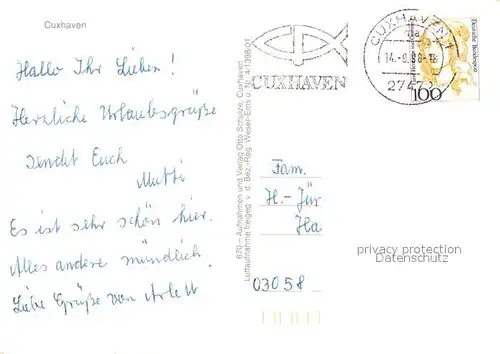 Cuxhaven
Hallo Ihr Lieben!
Herzliche Urlaubsgrüße
sendet Euch
Mutti
Es ist sehr schön hier.
Alles andere mündlich.
Liebe Grüße von Arlett
670 – Aufnahmen und Verlag Otto Schulze, Cuxhaven
Luftaufnahme freigeg. v. d. Bez.-Reg. Weser-Ems u. Nr. 4/1098/01
CUXHAVEN
CUXHAVEN 1
27472
Deutsche Bundespost
100
Fam.
H.-Jür
Ha
03058
privacy protection
Datenschutz